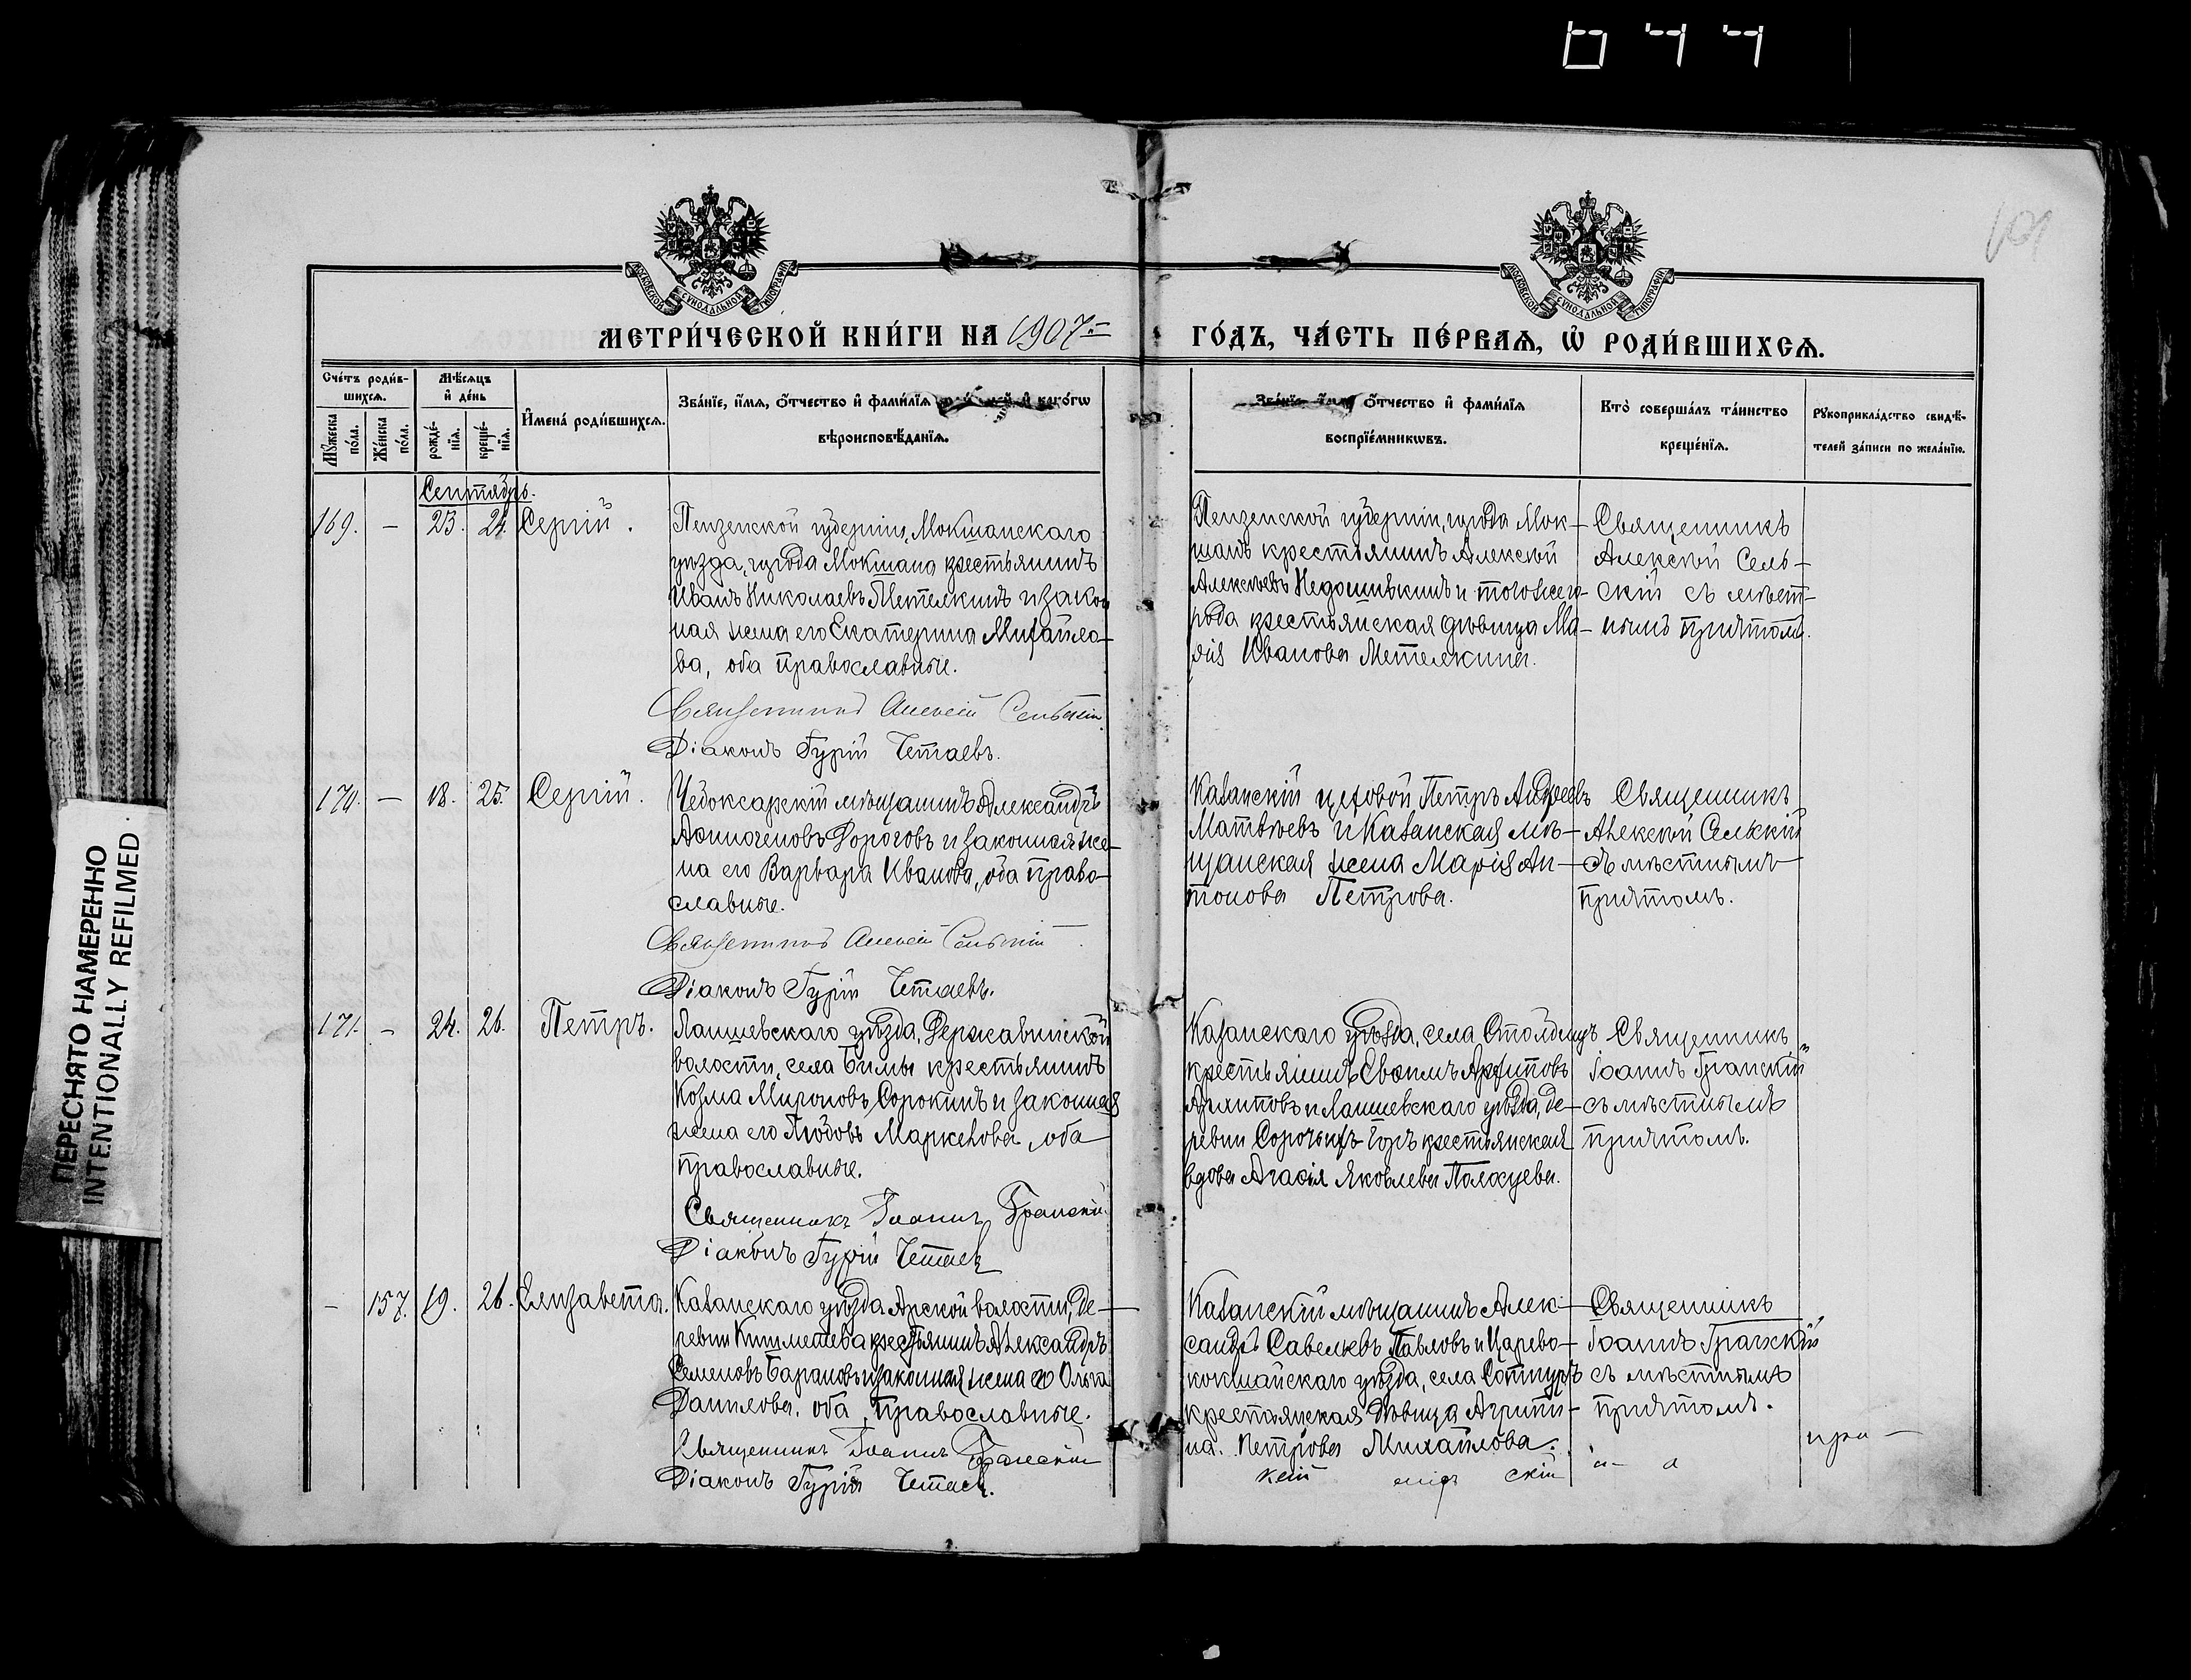 МЕТРИ́ЧЕСКОЙ КНИ́ГИ НА 1907 ГО́ДЪ, ЧА́СТЬ ПЕ́РВАЯ, Ѡ РОДИ́ВШИХСЯ.
МОСКОВСКОЙ СѴНОДАЛЬНОЙ ТИПОГРАФІИ
МОСКОВСКОЙ СѴНОДАЛЬНОЙ ТИПОГРАФІИ
Сче́тъ роди́в-
шихся.
Му́жеска по́ла.
Же́нска по́ла.
Мѣ́сяцъ
и҆ де́нь
рожде́-
нія.
креще́-
нія.
И҆мена̀ роди́вшихся.
Зва́нїе, и҆́мя, ѻ҆́тчество и҆ фами́лїя и҆ како́гѡ
вѣроисповѣ́данїя.
ѻ҆́тчество и҆ фами́лїя
воспрїе́мникѡвъ.
Кто̀ соверша́лъ та́инство
креще́нїя.
Рукоприкла́дство свидѣ́-
телей за́писи по жела́нїю.
Сентябрь.
169. – 23. 24. Сергій.
Пензенской губерніи, Мокшанскаго
уѣзда, города Мокшана крестьянинъ
Иванъ Николаевъ Метелкинъ и закон
ная жена его Екатерина Михайло–
ва, оба православные.
Священникъ Алексій Сельскій
Діаконъ Гурій Четаевъ.
Пензенской губерніи, города Мок–
шанъ крестьянинъ Алексѣй
Алексѣевъ и того же го–
рода крестьянская дѣвица Ма–
рія Иванова Метелкина.
Священникъ
Алексѣй Сель–
скій съ мѣст–
нымъ причтомъ.
170. – 18. 25. Сергій.
Чебоксарскій мѣщанинъ Александръ
Дороговъ и законная же–
на его Варвара Иванова, оба право–
славные.
Священникъ Алексій Сельскій
Діаконъ Гурій Четаевъ.
Казанскій цеховой Петръ Андреевъ
Матвѣевъ и Казанская мѣ–
щанская жена Марія Ан–
тонова Петрова.
Священникъ
Алексѣй Сельскій
съ мѣстнымъ
причтомъ.
171. – 24. 26. Петръ.
Лаишевскаго уѣзда, Державинской
волости, села крестьянинъ
Козма Мироновъ Сорокинъ и законная
жена его Любовь Маркелова, оба
православные.
Священникъ Іоаннъ Гранскій
Діаконъ Гурій Четаевъ
Казанскаго уѣзда, села
крестьянинъ Архиповъ
Архиповъ и Лаишевскаго уѣзда, де–
ревни Сорочьихъ Горъ крестьянская
вдова Агафія Яковлева
Священникъ
Іоаннъ Гранскій
съ мѣстнымъ
причтомъ.
– 157. 19. 26. Елизавета.
Казанскаго уѣзда Арской волости, де–
ревни крестьянинъ Александръ
Семеновъ Барановъ и законная жена его Ольга
Данилова, оба православные.
Священникъ Іоаннъ Гранскій
Діаконъ Гурій Четаевъ.
Казанскій мѣщанинъ Алек–
сандръ Савельевъ Павловъ и Царево–
кокшайскаго уѣзда, села Сотнуръ
крестьянская дѣвица Агрипи–
на Петрова Михайлова.
Священникъ
Іоаннъ Гранскій
съ мѣстнымъ
причтомъ.
ПЕРЕСНЯТО НАМЕРЕННО
INTENTIONALLY REFILMED